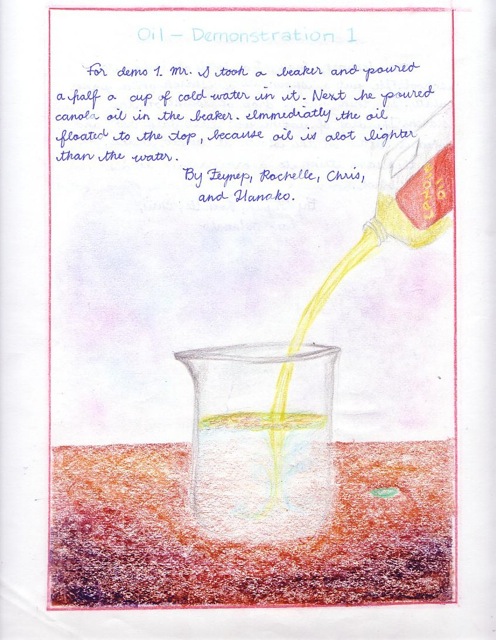 Oil – Demonstration 1
For demo 1. Mr. S took a beaker and poured
a half a cup of cold water in it. Next he poured
canola oil in the beaker. Immidiatly the oil
floated to the top, because oil is alot lighter
than the water.
By Zeynep, Rochelle, Chris,
and Hanako.
CANOLA
OIL